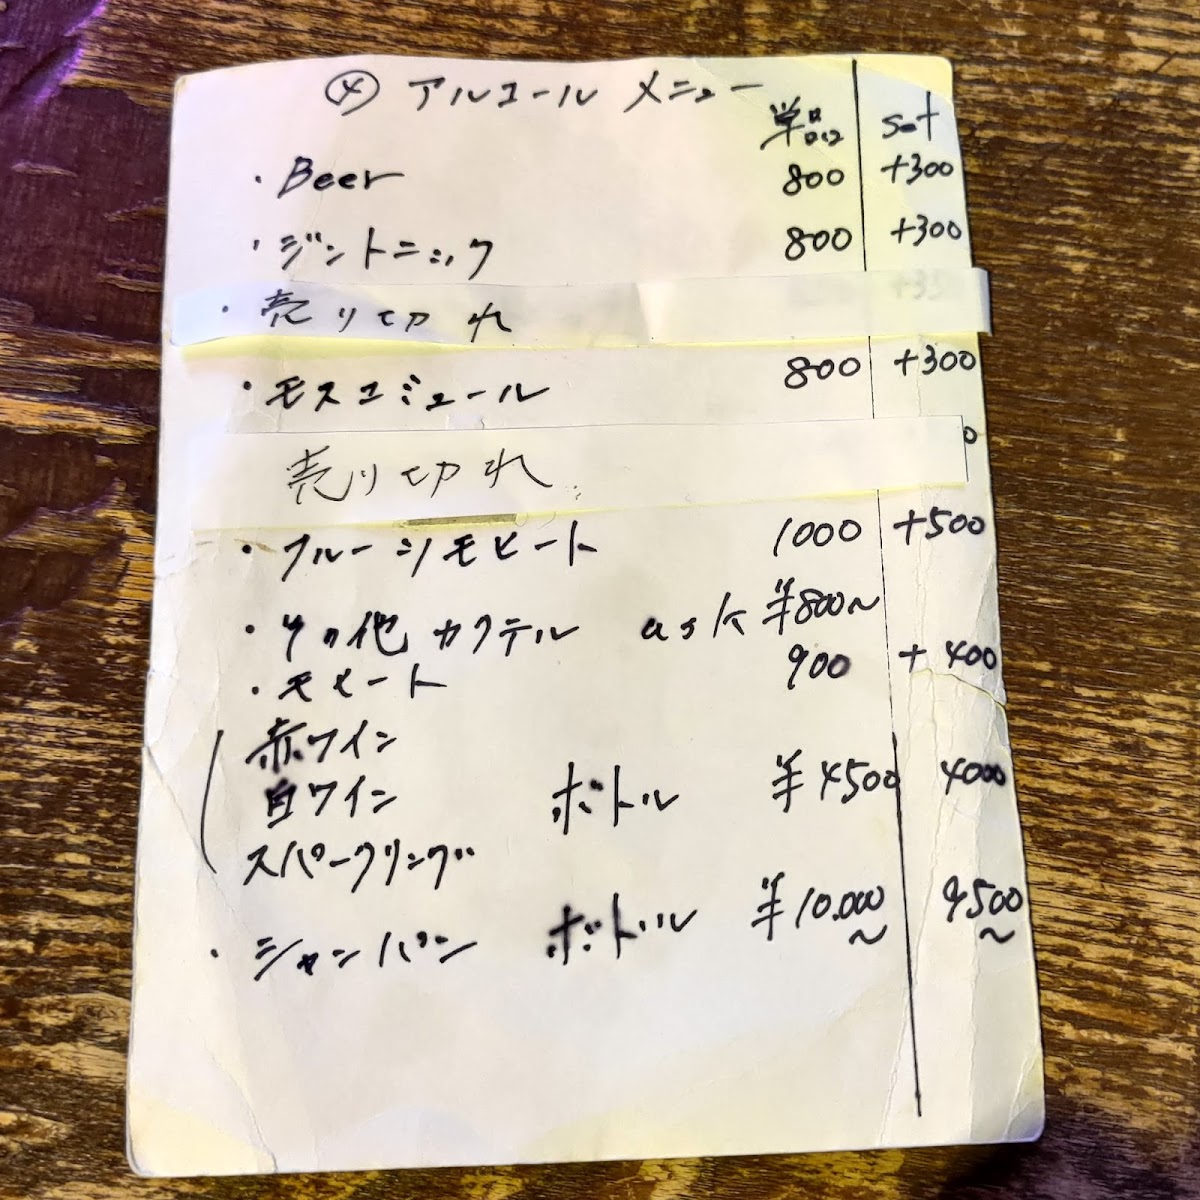 ④ アルコール メニュー
単品 set
・Beer 800 +300
・ジントニック 800 +300
・売り切れ
・モスコミュール 800 +300
売り切れ
・フルーツモヒート 1000 +500
・その他カクテル ask ¥800〜
・モヒート 900 +400
赤ワイン
白ワイン ボトル ¥4500 4000
スパークリング
・シャンパン ボトル ¥10.000〜 9500〜